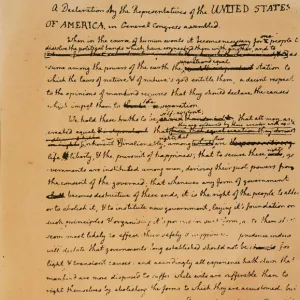 A Declaration by the Representatives of the UNITED STATES
OF AMERICA, in General Congress assembled.
When in the course of human events it becomes necessary for one people to
dissolve the political bands which have connected them with another, and to
-sume among the powers of the earth the station to
which the laws of nature & of nature's god entitle them, a decent respect
to the opinions of mankind requires that they should declare the causes
which impel them to the separation.
We hold these truths to be self-evident that all men are
created equal
life liberty, & the pursuit of happiness; that to secure these rights, go
-vernments are instituted among men, deriving their just powers from
the consent of the governed; that whenever any form of government
becomes destructive of these ends, it is the right of the people to alter
or to abolish it, & to institute new government, laying it's foundation on
such principles & organising it's powers in such form, as to them shall
seem most likely to effect their safety & happiness. prudence indeed
will dictate that governments long established should not be for
light & transient causes: and accordingly all experience hath shewn that
mankind are more disposed to suffer while evils are sufferable than to
right themselves by abolishing the forms to which they are accustomed. but